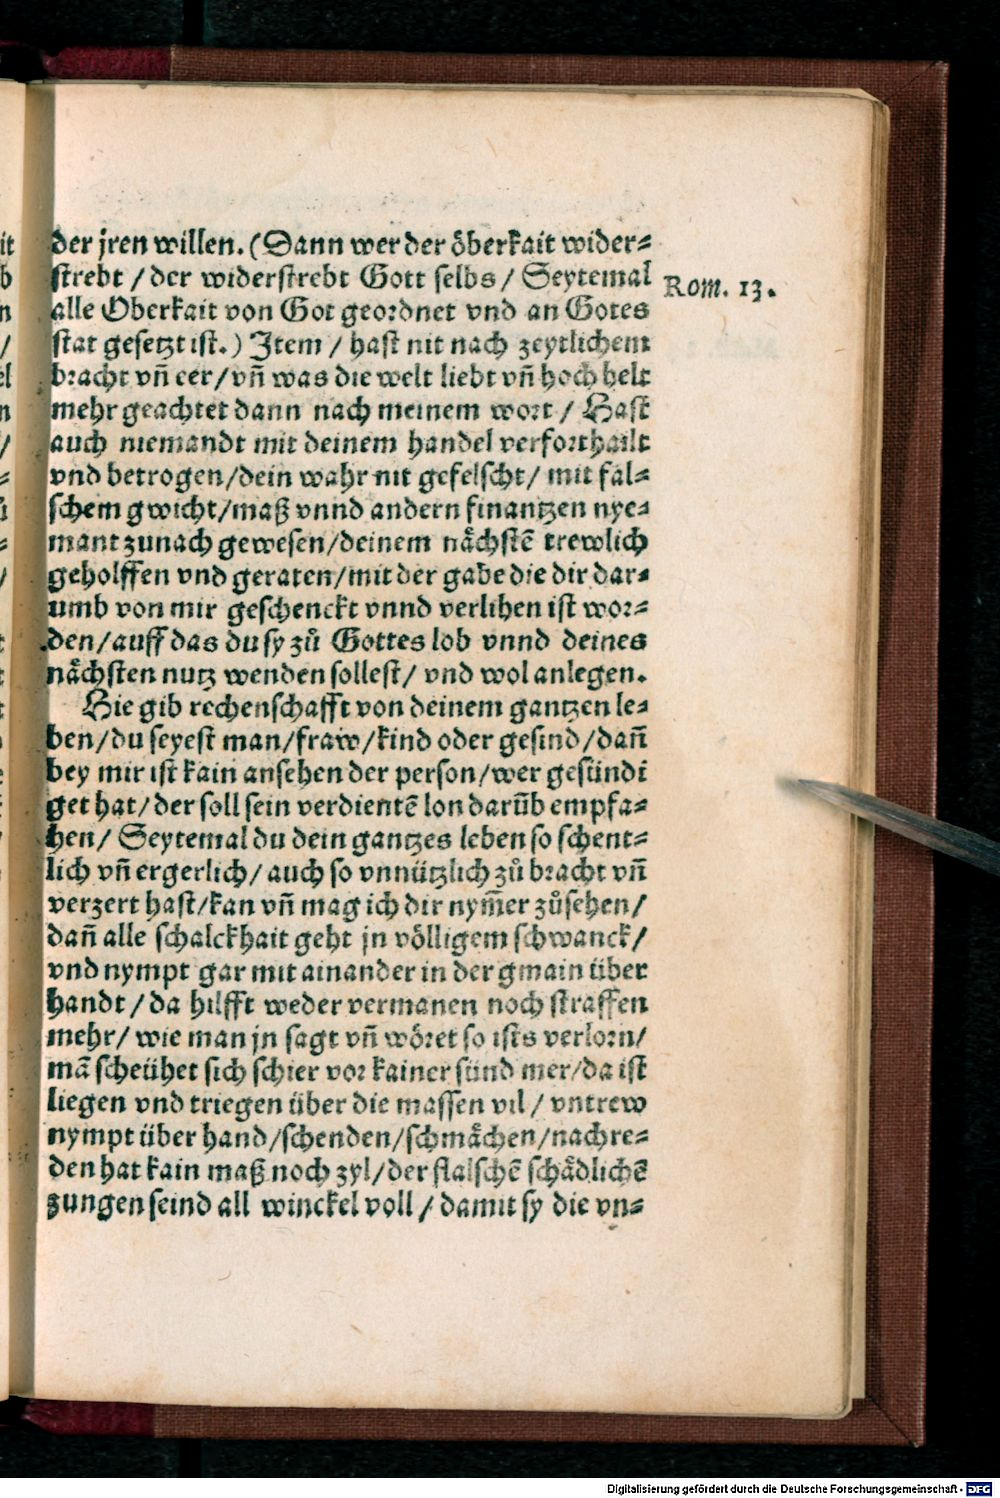 der jren willen. (Dann wer der öberkait wider⸗
strebt / der widerstrebt Gott selbs / Seytemal
Rom. 13.
alle Oberkait von Got geordnet vnd an Gotes
stat gesetzt ist.) Item / hast nit nach zeytlichem
bracht vñ eer/vñ was die welt liebt vñ hoch helt
mehr geachtet dann nach meinem wort / Hast
auch niemandt mit deinem handel verforthailt
vnd betrogen/dein wahr nit gefelscht/ mit fal⸗
schem gwicht/maß vnnd andern finantzen nye⸗
mant zunach gewesen/deinem naͤchstẽ trewlich
geholffen vnd geraten/mit der gabe die dir dar⸗
umb von mir geschenckt vnnd verlihen ist wor⸗
den/auff das du sy zuͦ Gottes lob vnnd deines
naͤchsten nutz wenden sollest/ vnd wol anlegen.
Hie gib rechenschafft von deinem gantzen le⸗
ben/du seyest man/fraw/kind oder gesind/dañ
bey mir ist kain ansehen der person/wer gesündi
get hat/der soll sein verdientẽ lon darũb empfa⸗
hen/ Seytemal du dein gantzes leben so schent⸗
lich vñ ergerlich/ auch so vnnützlich zuͦ bracht vñ
verzert hast/kan vñ mag ich dir nym̃er zuͦsehen/
dañ alle schalckhait geht jn völligem schwanck/
vnd nympt gar mit ainander in der gmain über
handt / da hilfft weder vermanen noch straffen
mehr/ wie man jn sagt vñ wöret so ists verlorn/
mã scheühet sich schier vor kainer sünd mer/da ist
liegen vnd triegen über die massen vil / vntrew
nympt über hand/schenden/schmaͤchen/nachre⸗
den hat kain maß noch zyl/der flalschẽ schaͤdlichẽ
zungen seind all winckel voll / damit sy die vn⸗
Digitalisierung gefördert durch die Deutsche Forschungsgemeinschaft - DFG